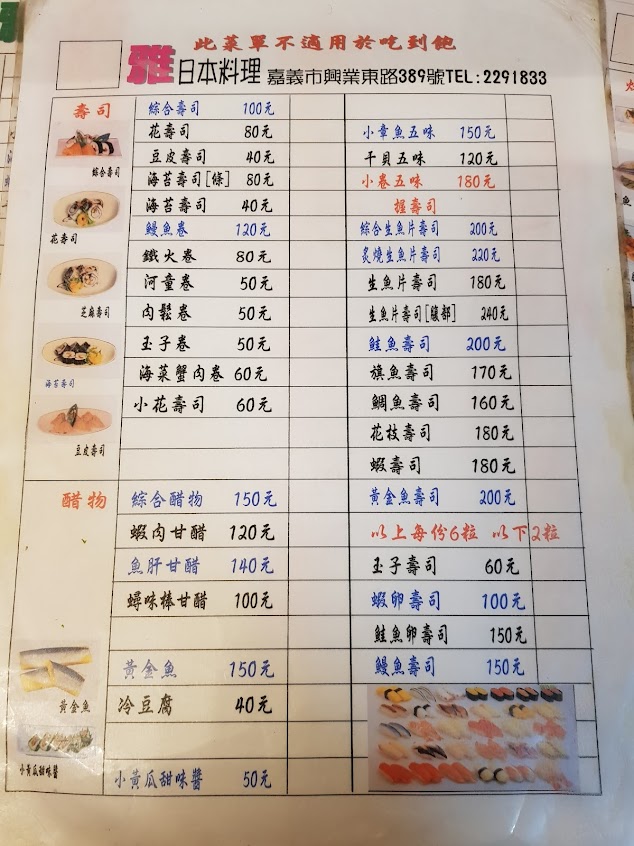 此菜單不適用於吃到飽
雅日本料理 嘉義市興業東路389號TEL:2291833
壽司
綜合壽司 100元
花壽司 80元
豆皮壽司 40元
海苔壽司[條] 80元
海苔壽司 40元
鰻魚卷 120元
鐵火卷 80元
河童卷 50元
肉鬆卷 50元
玉子卷 50元
海菜蟹肉卷 60元
小花壽司 60元
綜合壽司
花壽司
芝麻壽司
海苔壽司
豆皮壽司
醋物
綜合醋物 150元
蝦肉甘醋 120元
魚肝甘醋 140元
蟳味棒甘醋 100元
黃金魚 150元
冷豆腐 40元
小黃瓜甜味醬 50元
黃金魚
小黃瓜甜味醬
小章魚五味 150元
干貝五味 120元
小卷五味 180元
握壽司
綜合生魚片壽司 200元
炙燒生魚片壽司 220元
生魚片壽司 180元
生魚片壽司[馥都] 240元
鮭魚壽司 200元
旗魚壽司 170元
鯛魚壽司 160元
花枝壽司 180元
蝦壽司 180元
黃金魚壽司 200元
以上每份6粒 以下2粒
玉子壽司 60元
蝦卵壽司 100元
鮭魚卵壽司 150元
鰻魚壽司 150元